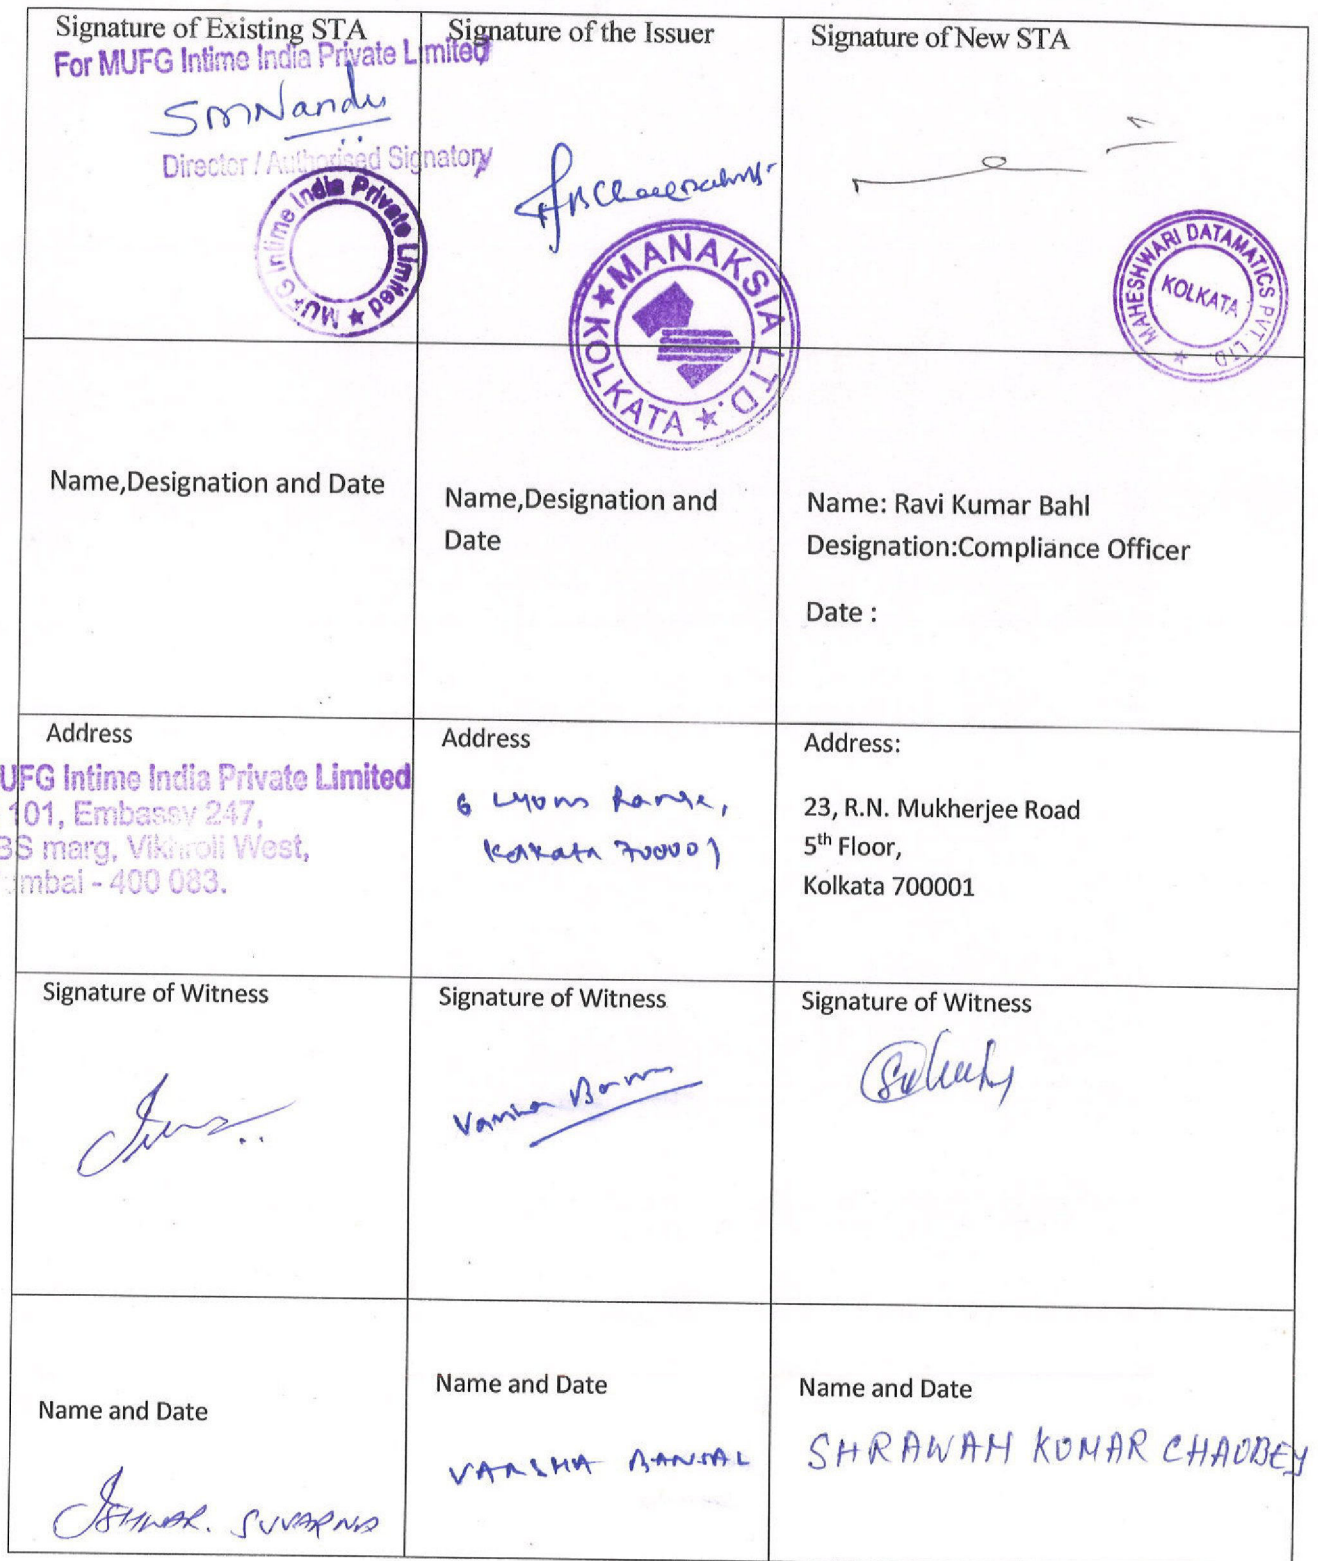 Signature of Existing STA
For MUFG Intime India Private Limited
SMNandu
Director / Authorised Signatory
MUFG Intime India Private Limited ★
Signature of the Issuer
★ MANAKSIA LTD. ★ KOLKATA
Signature of New STA
MAHESHWARI DATAMATICS PVT LTD. ★
KOLKATA
Name,Designation and Date
Name,Designation and
Date
Name: Ravi Kumar Bahl
Designation:Compliance Officer
Date :
Address
UFG Intime India Private Limited
101, Embassy 247,
BS marg, Vikhroli West,
mbai - 400 083.
Address
6 Lyons Range,
Kolkata 700001
Address:
23, R.N. Mukherjee Road
5th Floor,
Kolkata 700001
Signature of Witness
Signature of Witness
Varsha Bansal
Signature of Witness
Name and Date
ISHWAR. SUVARNA
Name and Date
VARSHA BANSAL
Name and Date
SHRAWAN KUMAR CHAUBEY